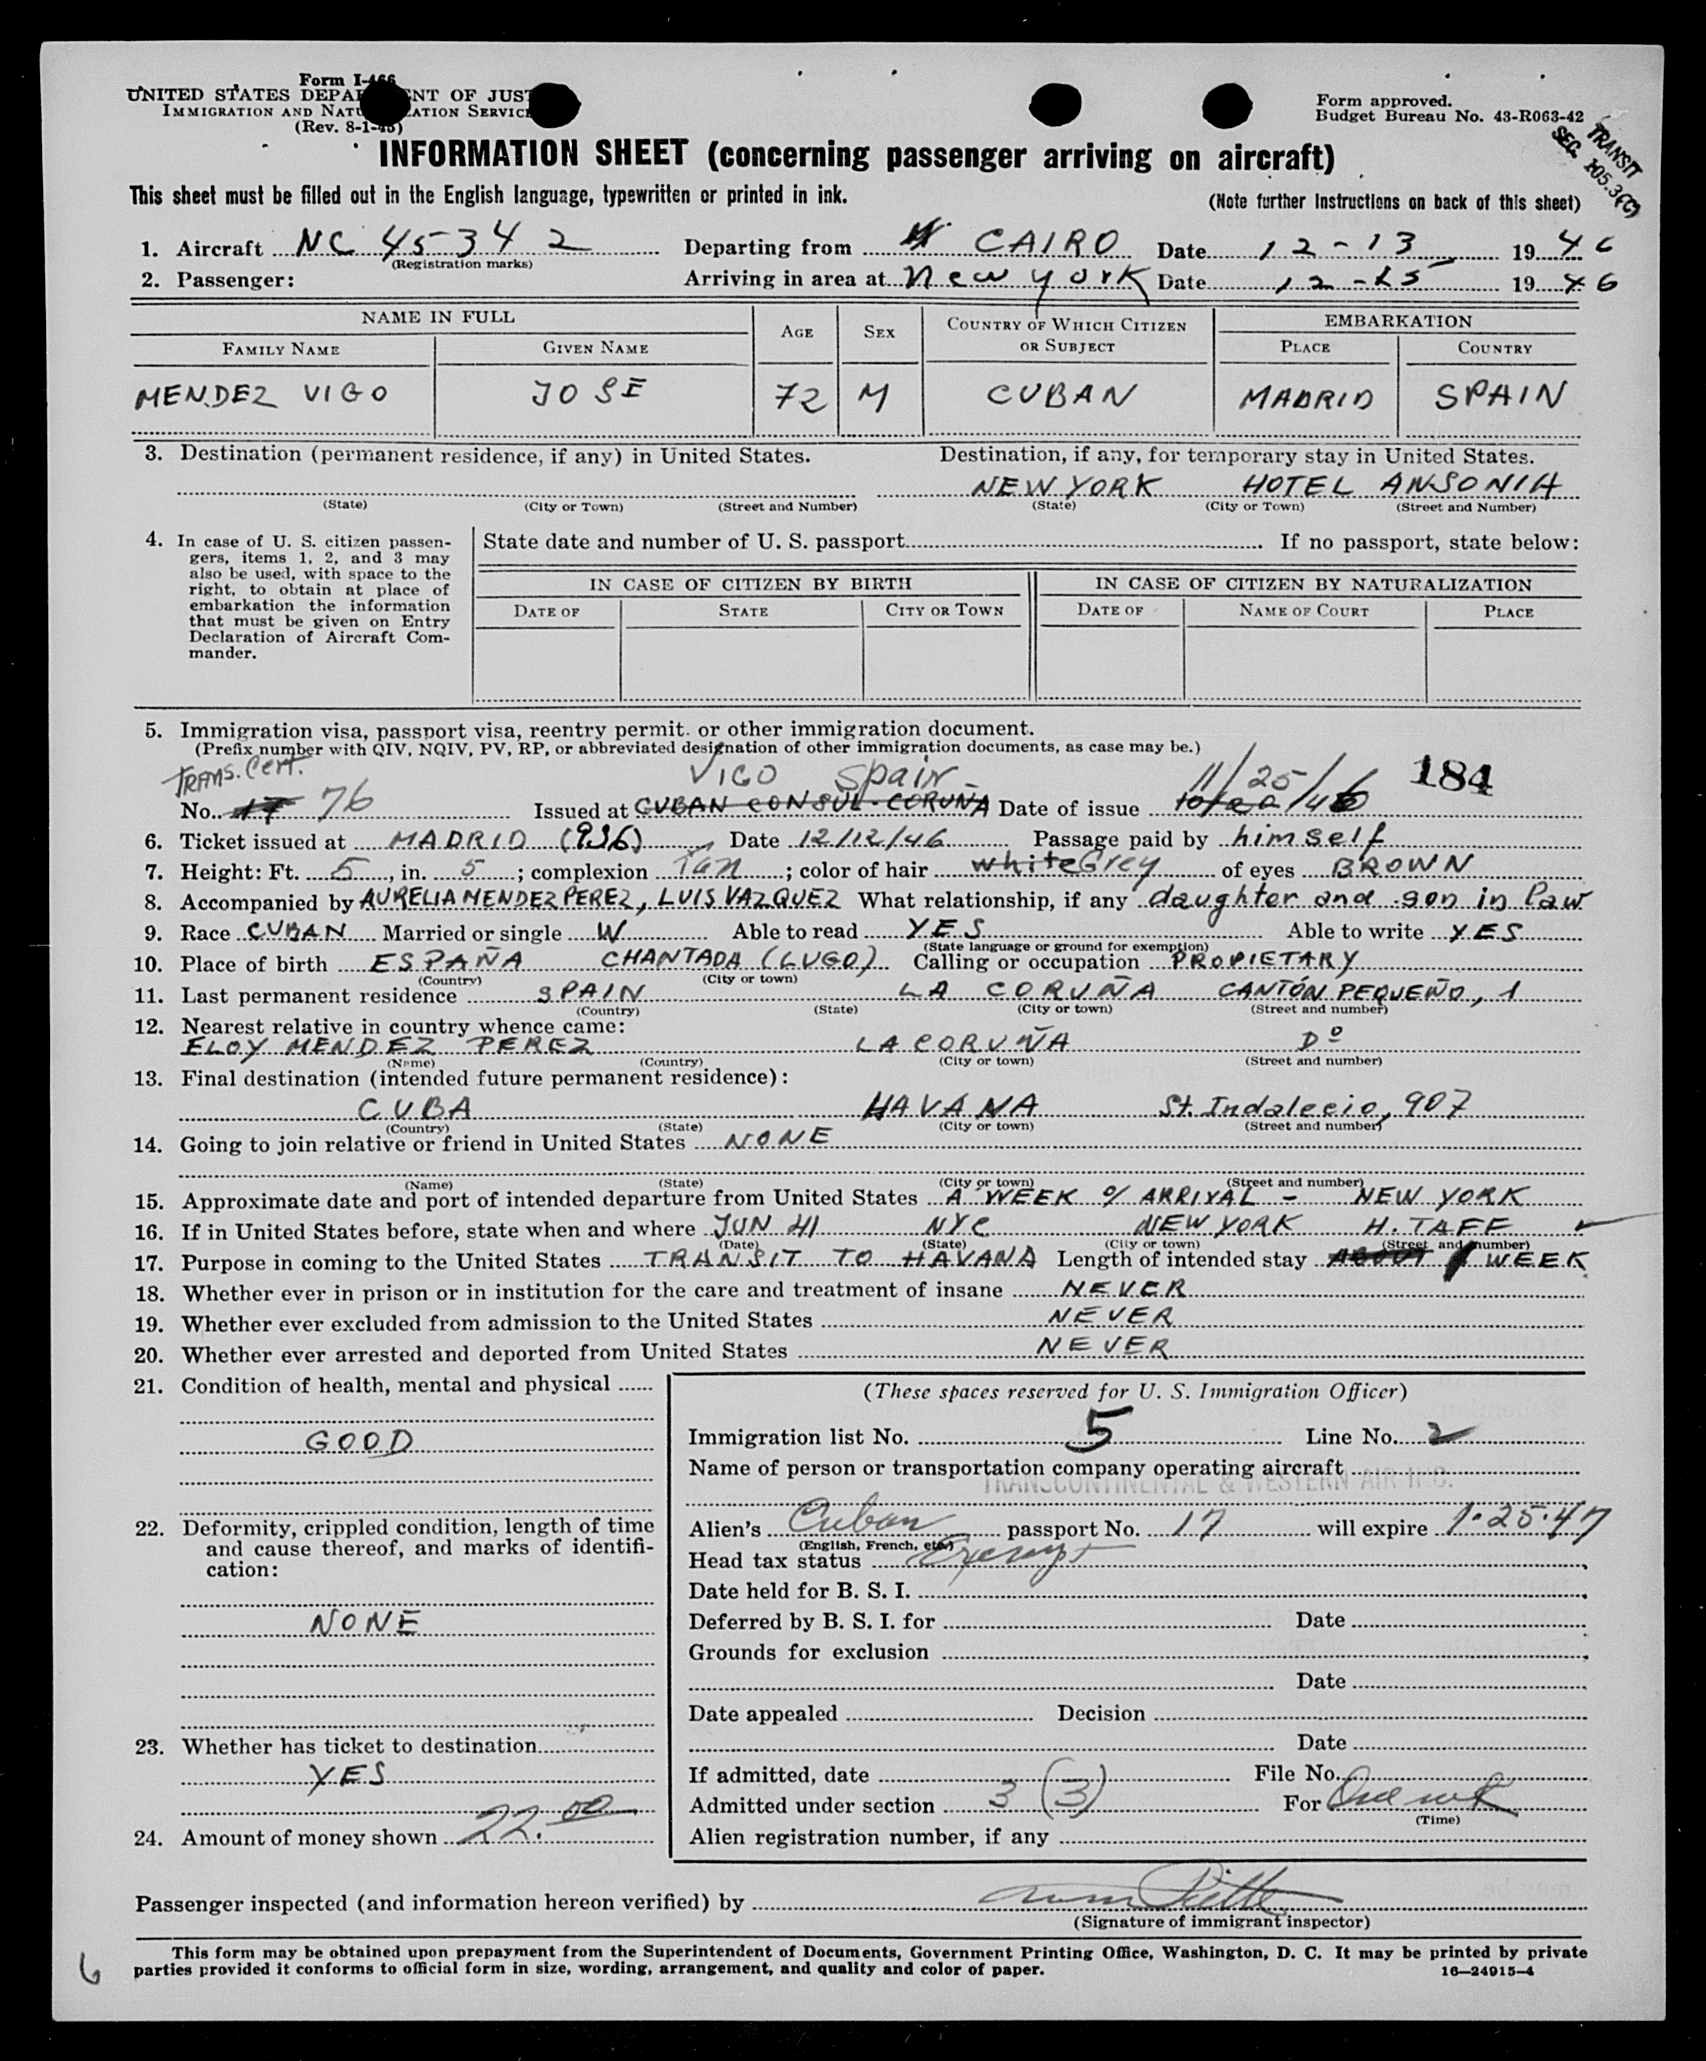 Form I-466
UNITED STATES DEPARTMENT OF JUSTICE
IMMIGRATION AND NATURALIZATION SERVICE
(Rev. 8-1-45)
Form approved.
Budget Bureau No. 43-R063-42
TRANSIT
SEC. 105.3(C)
INFORMATION SHEET (concerning passenger arriving on aircraft)
This sheet must be filled out in the English language, typewritten or printed in ink. (Note further instructions on back of this sheet)
1. Aircraft NC 45342 Departing from CAIRO Date 12-13 1946
(Registration marks)
2. Passenger: Arriving in area at New York Date 12-15 1946
NAME IN FULL AGE SEX COUNTRY OF WHICH CITIZEN OR SUBJECT EMBARKATION
FAMILY NAME GIVEN NAME PLACE COUNTRY
MENDEZ VIGO JOSE 72 M CUBAN MADRID SPAIN
3. Destination (permanent residence, if any) in United States. Destination, if any, for temporary stay in United States.
NEW YORK HOTEL ANSONIA
(State) (City or Town) (Street and Number) (State) (City or Town) (Street and Number)
4. In case of U. S. citizen passen-
gers, items 1, 2, and 3 may
also be used, with space to the
right, to obtain at place of
embarkation the information
that must be given on Entry
Declaration of Aircraft Com-
mander.
State date and number of U. S. passport. If no passport, state below:
IN CASE OF CITIZEN BY BIRTH IN CASE OF CITIZEN BY NATURALIZATION
DATE OF STATE CITY OR TOWN DATE OF NAME OF COURT PLACE
5. Immigration visa, passport visa, reentry permit. or other immigration document.
(Prefix number with QIV, NQIV, PV, RP, or abbreviated designation of other immigration documents, as case may be.)
TRANS. Cert. VIGO Spain 11/25/46 184
No. 17 76 Issued at CUBAN CONSUL-CORUÑA Date of issue
6. Ticket issued at MADRID (936) Date 12/12/46 Passage paid by himself
7. Height: Ft. 5, in. 5; complexion Tan; color of hair white Grey of eyes BROWN
8. Accompanied by AURELIA MENDEZ PEREZ, LUIS VAZQUEZ What relationship, if any daughter and son in law
9. Race CUBAN Married or single W Able to read YES Able to write YES
(State language or ground for exemption)
10. Place of birth ESPAÑA CHANTADA (LUGO) Calling or occupation PROPIETARY
(Country) (City or town)
11. Last permanent residence SPAIN LA CORUÑA CANTÓN PEQUEÑO, 1
(Country) (State) (City or town) (Street and number)
12. Nearest relative in country whence came:
ELOY MENDEZ PEREZ LA CORUÑA Dº
(Name) (Country) (City or town) (Street and number)
13. Final destination (intended future permanent residence):
CUBA HAVANA St. Indalecio, 907
(Country) (State) (City or town) (Street and number)
14. Going to join relative or friend in United States NONE
(Name) (State) (City or town) (Street and number)
15. Approximate date and port of intended departure from United States A WEEK O/ ARRIVAL - NEW YORK
16. If in United States before, state when and where JUN 41 NYC NEW YORK H. TAFF
(Date) (State) (City or town) (Street and number)
17. Purpose in coming to the United States TRANSIT TO HAVANA Length of intended stay ABOUT 1 WEEK
18. Whether ever in prison or in institution for the care and treatment of insane NEVER
19. Whether ever excluded from admission to the United States NEVER
20. Whether ever arrested and deported from United States NEVER
21. Condition of health, mental and physical
GOOD
22. Deformity, crippled condition, length of time
and cause thereof, and marks of identifi-
cation:
NONE
23. Whether has ticket to destination
YES
24. Amount of money shown 22.00
(These spaces reserved for U. S. Immigration Officer)
Immigration list No. 5 Line No. 2
Name of person or transportation company operating aircraft
TRANSCONTINENTAL & WESTERN AIR INC.
Alien's Cuban passport No. 17 will expire 1-25-47
(English, French, etc.)
Head tax status Exempt
Date held for B. S. I.
Deferred by B. S. I. for Date
Grounds for exclusion
Date
Date appealed Decision
Date
If admitted, date File No.
Admitted under section 3 (3) For One wk
(Time)
Alien registration number, if any
Passenger inspected (and information hereon verified) by
(Signature of immigrant inspector)
This form may be obtained upon prepayment from the Superintendent of Documents, Government Printing Office, Washington, D. C. It may be printed by private
parties provided it conforms to official form in size, wording, arrangement, and quality and color of paper. 16—24915-4
6